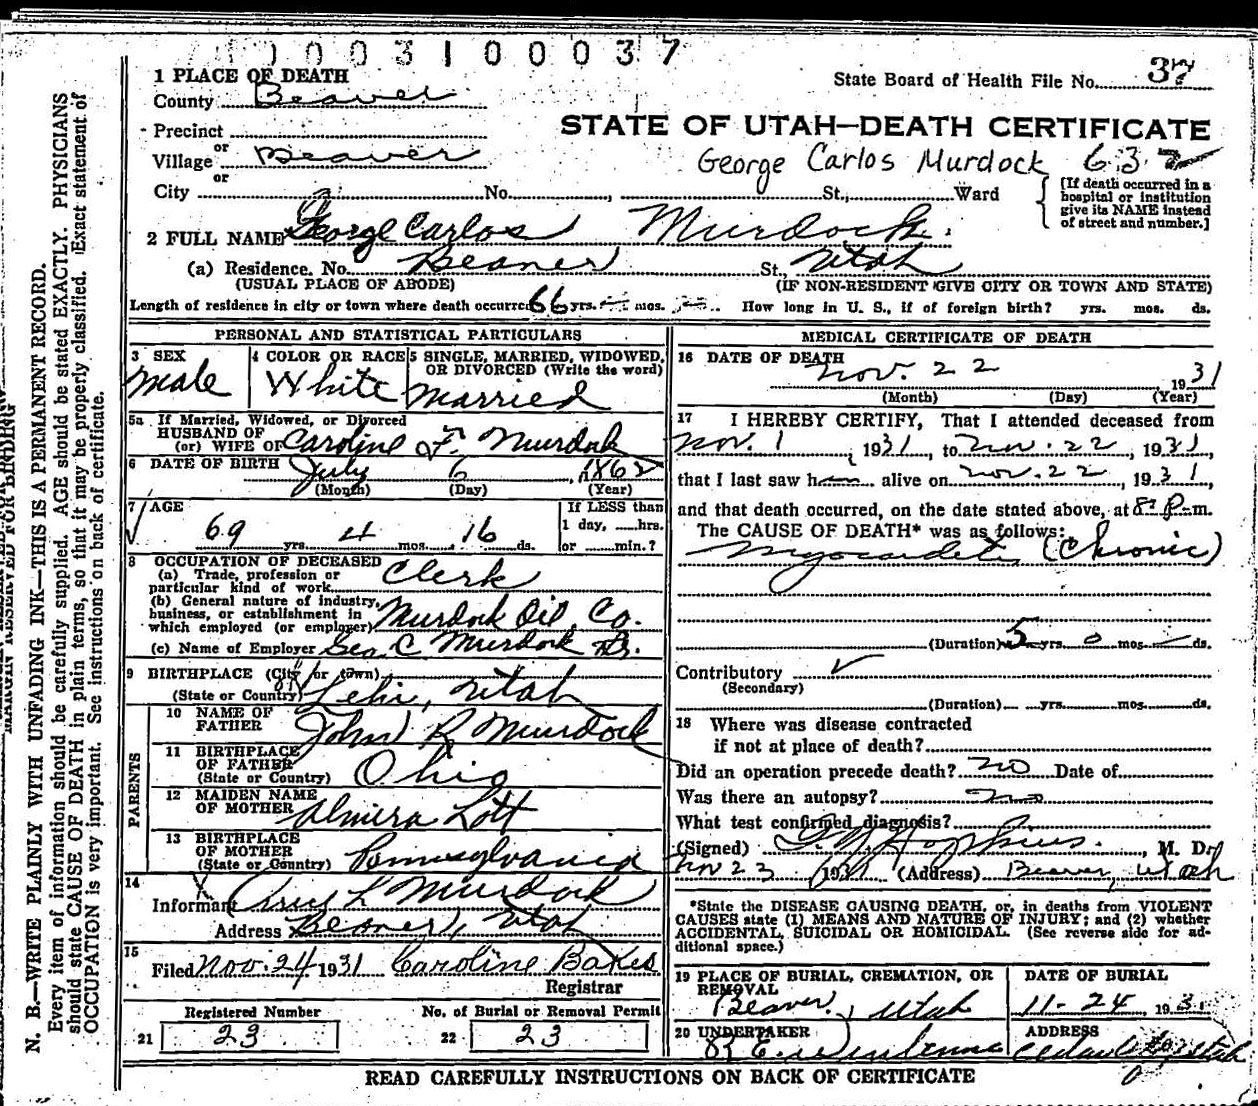 10003100037
1 PLACE OF DEATH
State Board of Health File No. 37
County Beaver
STATE OF UTAH—DEATH CERTIFICATE
Precinct
or
Village Beaver
George Carlos Murdock 63
or
City No. , St., Ward
[If death occurred in a
hospital or institution
give its NAME instead
of street and number.]
2 FULL NAME George Carlos Murdock.
(a) Residence. No. Beaver St., Utah
(USUAL PLACE OF ABODE) (IF NON-RESIDENT GIVE CITY OR TOWN AND STATE)
Length of residence in city or town where death occurred 66 yrs. mos. How long in U. S., if of foreign birth? yrs. mos. ds.
PERSONAL AND STATISTICAL PARTICULARS
3 SEX
Male
4 COLOR OR RACE
White
5 SINGLE, MARRIED, WIDOWED,
OR DIVORCED (Write the word)
Married
5a If Married, Widowed, or Divorced
HUSBAND OF
(or) WIFE OF Caroline F. Murdock
6 DATE OF BIRTH July 6, 1862
(Month) (Day) (Year)
7 AGE
69 yrs. 4 mos. 16 ds.
If LESS than
1 day, hrs.
or min.?
8 OCCUPATION OF DECEASED
(a) Trade, profession or
particular kind of work Clerk
(b) General nature of industry,
business, or establishment in
which employed (or employer) Murdock Oil Co.
(c) Name of Employer Geo. C Murdock
9 BIRTHPLACE (City or town)
(State or Country) Lehi, Utah
PARENTS
10 NAME OF
FATHER John R Murdock
11 BIRTHPLACE
OF FATHER
(State or Country) Ohio
12 MAIDEN NAME
OF MOTHER Almira Lott
13 BIRTHPLACE
OF MOTHER
(State or Country) Pennsylvania
14
Informant L Murdock
Address Beaver, Utah
15
Filed Nov. 24 1931 Caroline Bakes
Registrar
Registered Number No. of Burial or Removal Permit
21 23 22 23
MEDICAL CERTIFICATE OF DEATH
16 DATE OF DEATH
Nov. 22 1931
(Month) (Day) (Year)
17 I HEREBY CERTIFY, That I attended deceased from
Nov. 1, 1931, to Nov. 22, 1931
that I last saw h alive on Nov. 22, 1931,
and that death occurred, on the date stated above, at 8 P. m.
The CAUSE OF DEATH* was as follows:
Myocarditis (Chronic)
(Duration) 5 yrs. 0 mos. ds.
Contributory
(Secondary)
(Duration) yrs. mos. ds.
18 Where was disease contracted
if not at place of death?
Did an operation precede death? no Date of
Was there an autopsy? no
What test confirmed diagnosis?
(Signed) Hopkins. , M. D.
Nov 23 1931 (Address) Beaver, Utah
*State the DISEASE CAUSING DEATH, or, in deaths from VIOLENT
CAUSES state (1) MEANS AND NATURE OF INJURY; and (2) whether
ACCIDENTAL, SUICIDAL OR HOMICIDAL. (See reverse side for ad-
ditional space.)
19 PLACE OF BURIAL, CREMATION, OR
REMOVAL
Beaver, Utah
DATE OF BURIAL
11-24 1931
20 UNDERTAKER
ADDRESS
Cedar City Utah
READ CAREFULLY INSTRUCTIONS ON BACK OF CERTIFICATE
MARGIN RESERVED FOR BINDING
N. B.—WRITE PLAINLY WITH UNFADING INK—THIS IS A PERMANENT RECORD.
Every item of information should be carefully supplied. AGE should be stated EXACTLY. PHYSICIANS
should state CAUSE OF DEATH in plain terms, so that it may be properly classified. Exact statement of
OCCUPATION is very important. See instructions on back of certificate.